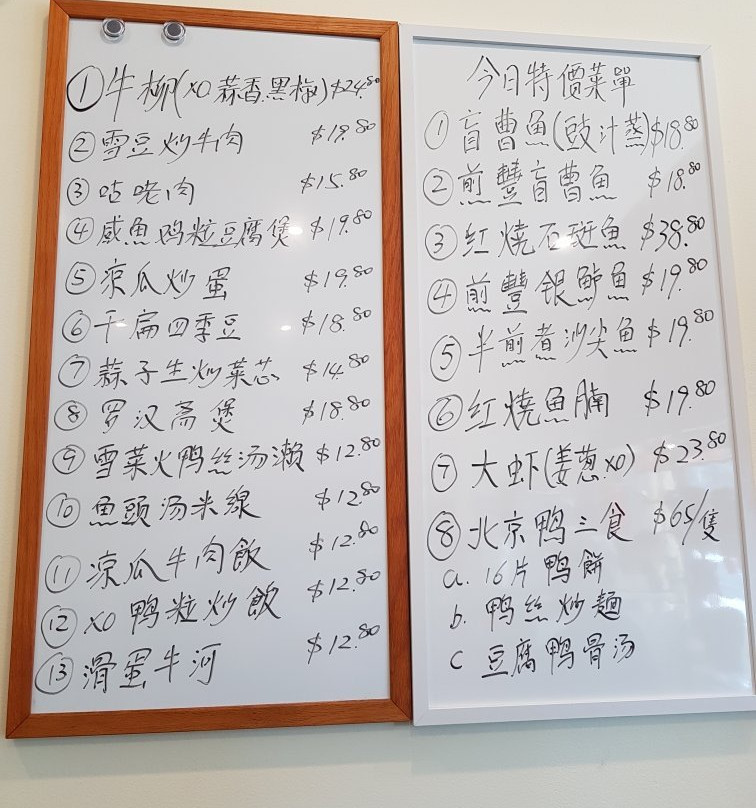 ① 牛柳(XO 蒜香黑椒) $24.80
② 雪豆炒牛肉 $19.80
③ 咕咾肉 $15.80
④ 咸魚鸡粒豆腐煲 $19.80
⑤ 凉瓜炒蛋 $19.80
⑥ 干扁四季豆 $18.80
⑦ 蒜子生炒菜芯 $14.80
⑧ 罗汉斋煲 $18.80
⑨ 雪菜火鸭丝汤濑 $12.80
⑩ 魚頭汤米線 $12.80
⑪ 凉瓜牛肉飯 $12.80
⑫ XO 鸭粒炒飯 $12.80
⑬ 滑蛋牛河 $12.80
今日特價菜單
① 盲曹魚(豉汁蒸) $18.80
② 煎豐盲曹魚 $18.80
③ 红燒石斑魚 $38.80
④ 煎豐银鲈魚 $19.80
⑤ 半煎煮沙尖魚 $19.80
⑥ 红燒魚腩 $19.80
⑦ 大虾(姜葱.XO) $23.80
⑧ 北京鸭三食 $65/隻
a. 16片鸭餅
b. 鸭丝炒麵
c 豆腐鸭骨汤